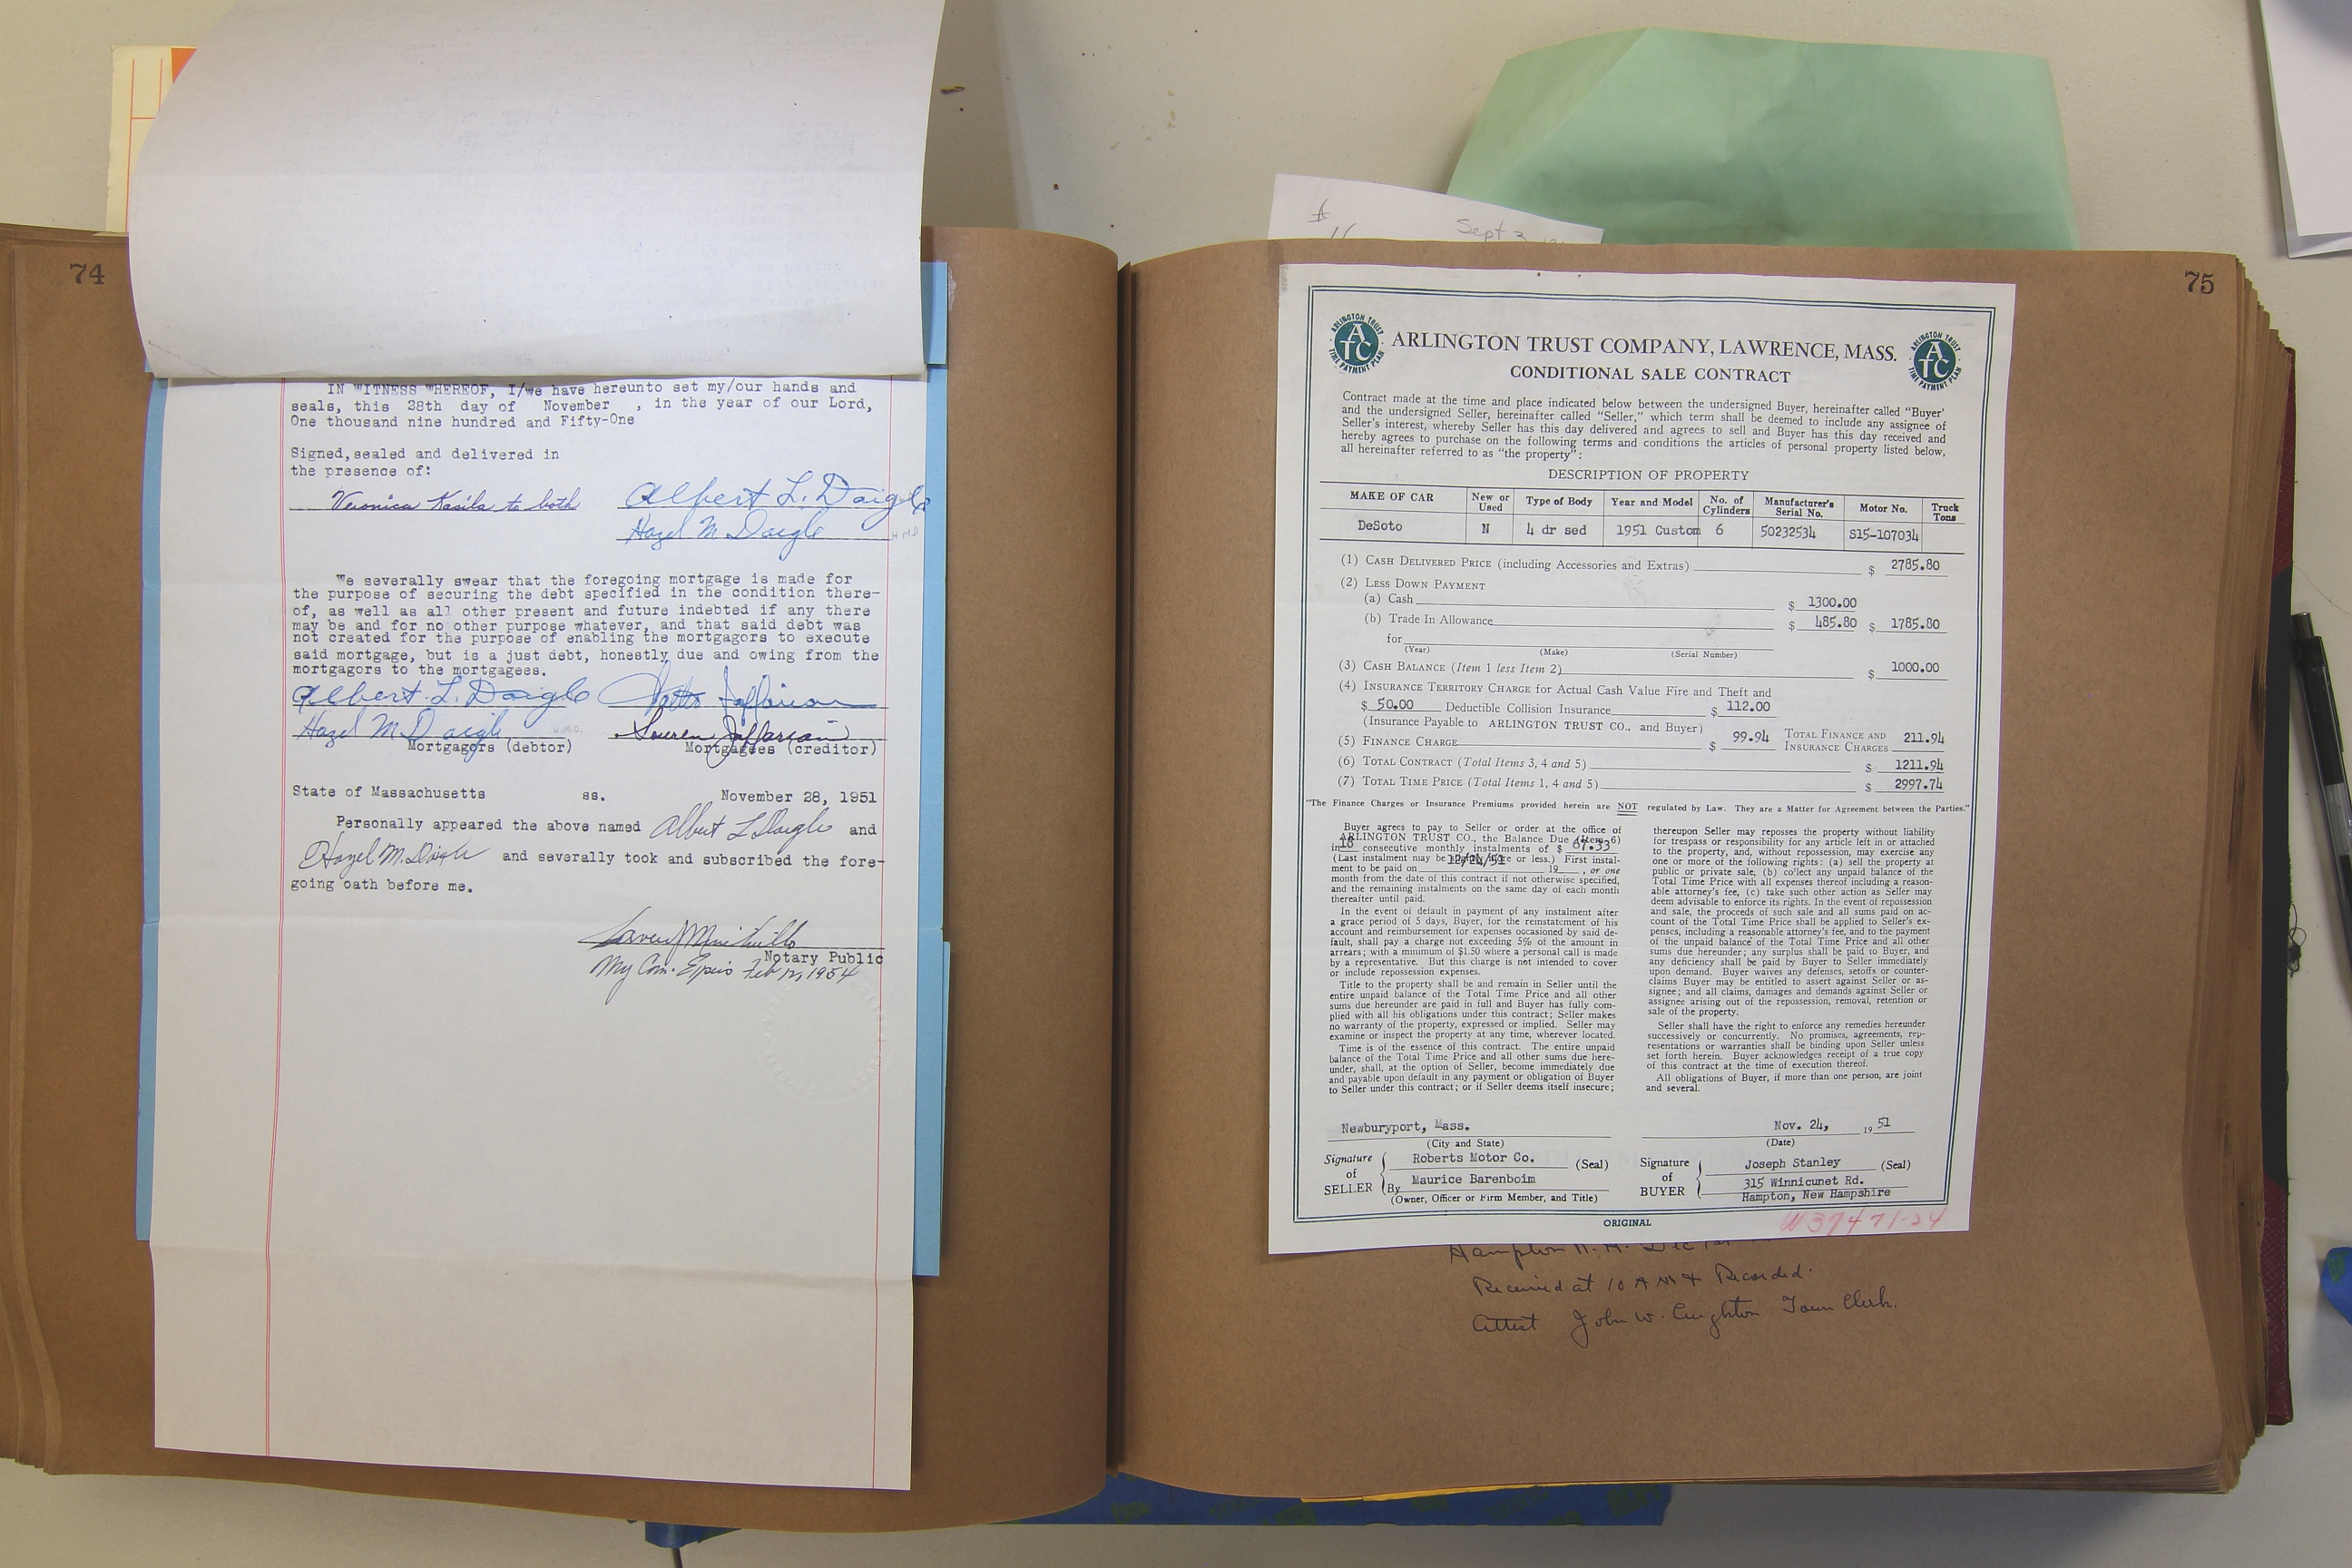 74
IN WITNESS WHEREOF, I/we have hereunto set my/our hands and
seals, this 28th day of November , in the year of our Lord,
One thousand nine hundred and Fifty-One
Signed,sealed and delivered in
the presence of:
Veronica Kasila to both
Albert L. Daigle
Hazel M Daigle
H M D
We severally swear that the foregoing mortgage is made for
the purpose of securing the debt specified in the condition there-
of, as well as all other present and future indebted if any there
may be and for no other purpose whatever, and that said debt was
not created for the purpose of enabling the mortgagors to execute
said mortgage, but is a just debt, honestly due and owing from the
mortgagors to the mortgagees.
Albert L. Daigle
Jaffarian
Hazel M Daigle H.M.D.
Souren Jaffarian
Mortgagors (debtor) Mortgagees (creditor)
State of Massachusetts ss. November 28, 1951
Personally appeared the above named Albert L Daigle and
Hazel M. Daigle and severally took and subscribed the fore-
going oath before me.
Notary Public
My Com. Expires Feb 12, 1954
Sept 3
75
ARLINGTON TRUST
ATC
TIME PAYMENT PLAN
ARLINGTON TRUST COMPANY, LAWRENCE, MASS.
CONDITIONAL SALE CONTRACT
ARLINGTON TRUST
ATC
TIME PAYMENT PLAN
Contract made at the time and place indicated below between the undersigned Buyer, hereinafter called "Buyer'
and the undersigned Seller, hereinafter called "Seller," which term shall be deemed to include any assignee of
Seller's interest, whereby Seller has this day delivered and agrees to sell and Buyer has this day received and
hereby agrees to purchase on the following terms and conditions the articles of personal property listed below,
all hereinafter referred to as "the property":
DESCRIPTION OF PROPERTY
MAKE OF CAR New or Used Type of Body Year and Model No. of Cylinders Manufacturer's Serial No. Motor No. Truck Tons
DeSoto N 4 dr sed 1951 Custom 6 50232534 S15-107034
(1) CASH DELIVERED PRICE (including Accessories and Extras) $ 2785.80
(2) LESS DOWN PAYMENT
(a) Cash $ 1300.00
(b) Trade In Allowance $ 485.80 $ 1785.80
for
(Year) (Make) (Serial Number)
(3) CASH BALANCE (Item 1 less Item 2) $ 1000.00
(4) INSURANCE TERRITORY CHARGE for Actual Cash Value Fire and Theft and
$ 50.00 Deductible Collision Insurance $ 112.00
(Insurance Payable to ARLINGTON TRUST CO., and Buyer)
(5) FINANCE CHARGE $ 99.94 TOTAL FINANCE AND INSURANCE CHARGES 211.94
(6) TOTAL CONTRACT (Total Items 3, 4 and 5) $ 1211.94
(7) TOTAL TIME PRICE (Total Items 1, 4 and 5) $ 2997.74
"The Finance Charges or Insurance Premiums provided herein are NOT regulated by Law. They are a Matter for Agreement between the Parties."
Buyer agrees to pay to Seller or order at the office of
ARLINGTON TRUST CO., the Balance Due (Item 6)
in 18 consecutive monthly instalments of $ 67.33
(Last instalment may be slightly more or less.) First instal-
ment to be paid on 12/24/51 19 , or one
month from the date of this contract if not otherwise specified,
and the remaining instalments on the same day of each month
thereafter until paid.
In the event of default in payment of any instalment after
a grace period of 5 days, Buyer, for the reinstatement of his
account and reimbursement for expenses occasioned by said de-
fault, shall pay a charge not exceeding 5% of the amount in
arrears; with a minimum of $1.50 where a personal call is made
by a representative. But this charge is not intended to cover
or include repossession expenses.
Title to the property shall be and remain in Seller until the
entire unpaid balance of the Total Time Price and all other
sums due hereunder are paid in full and Buyer has fully com-
plied with all his obligations under this contract; Seller makes
no warranty of the property, expressed or implied. Seller may
examine or inspect the property at any time, wherever located.
Time is of the essence of this contract. The entire unpaid
balance of the Total Time Price and all other sums due here-
under, shall, at the option of Seller, become immediately due
and payable upon default in any payment or obligation of Buyer
to Seller under this contract; or if Seller deems itself insecure;
thereupon Seller may reposses the property without liability
for trespass or responsibility for any article left in or attached
to the property, and, without repossession, may exercise any
one or more of the following rights: (a) sell the property at
public or private sale, (b) collect any unpaid balance of the
Total Time Price with all expenses thereof including a reason-
able attorney's fee, (c) take such other action as Seller may
deem advisable to enforce its rights. In the event of repossession
and sale, the proceeds of such sale and all sums paid on ac-
count of the Total Time Price shall be applied to Seller's ex-
penses, including a reasonable attorney's fee, and to the payment
of the unpaid balance of the Total Time Price and all other
sums due hereunder; any surplus shall be paid to Buyer, and
any deficiency shall be paid by Buyer to Seller immediately
upon demand. Buyer waives any defenses, setoffs or counter-
claims Buyer may be entitled to assert against Seller or as-
signee; and all claims, damages and demands against Seller or
assignee arising out of the repossession, removal, retention or
sale of the property.
Seller shall have the right to enforce any remedies hereunder
successively or concurrently. No promises, agreements, rep-
resentations or warranties shall be binding upon Seller unless
set forth herein. Buyer acknowledges receipt of a true copy
of this contract at the time of execution thereof.
All obligations of Buyer, if more than one person, are joint
and several.
Newburyport, Mass. Nov. 24, 19 51
(City and State) (Date)
Signature of SELLER Roberts Motor Co. (Seal)
By Maurice Barenboim
(Owner, Officer or Firm Member, and Title)
Signature of BUYER Joseph Stanley (Seal)
315 Winnicunet Rd.
Hampton, New Hampshire
ORIGINAL
W37471-24
Hampton N. H. Dec 1st
Received at 10 A M & Recorded.
Attest John W. Creighton Town Clerk.